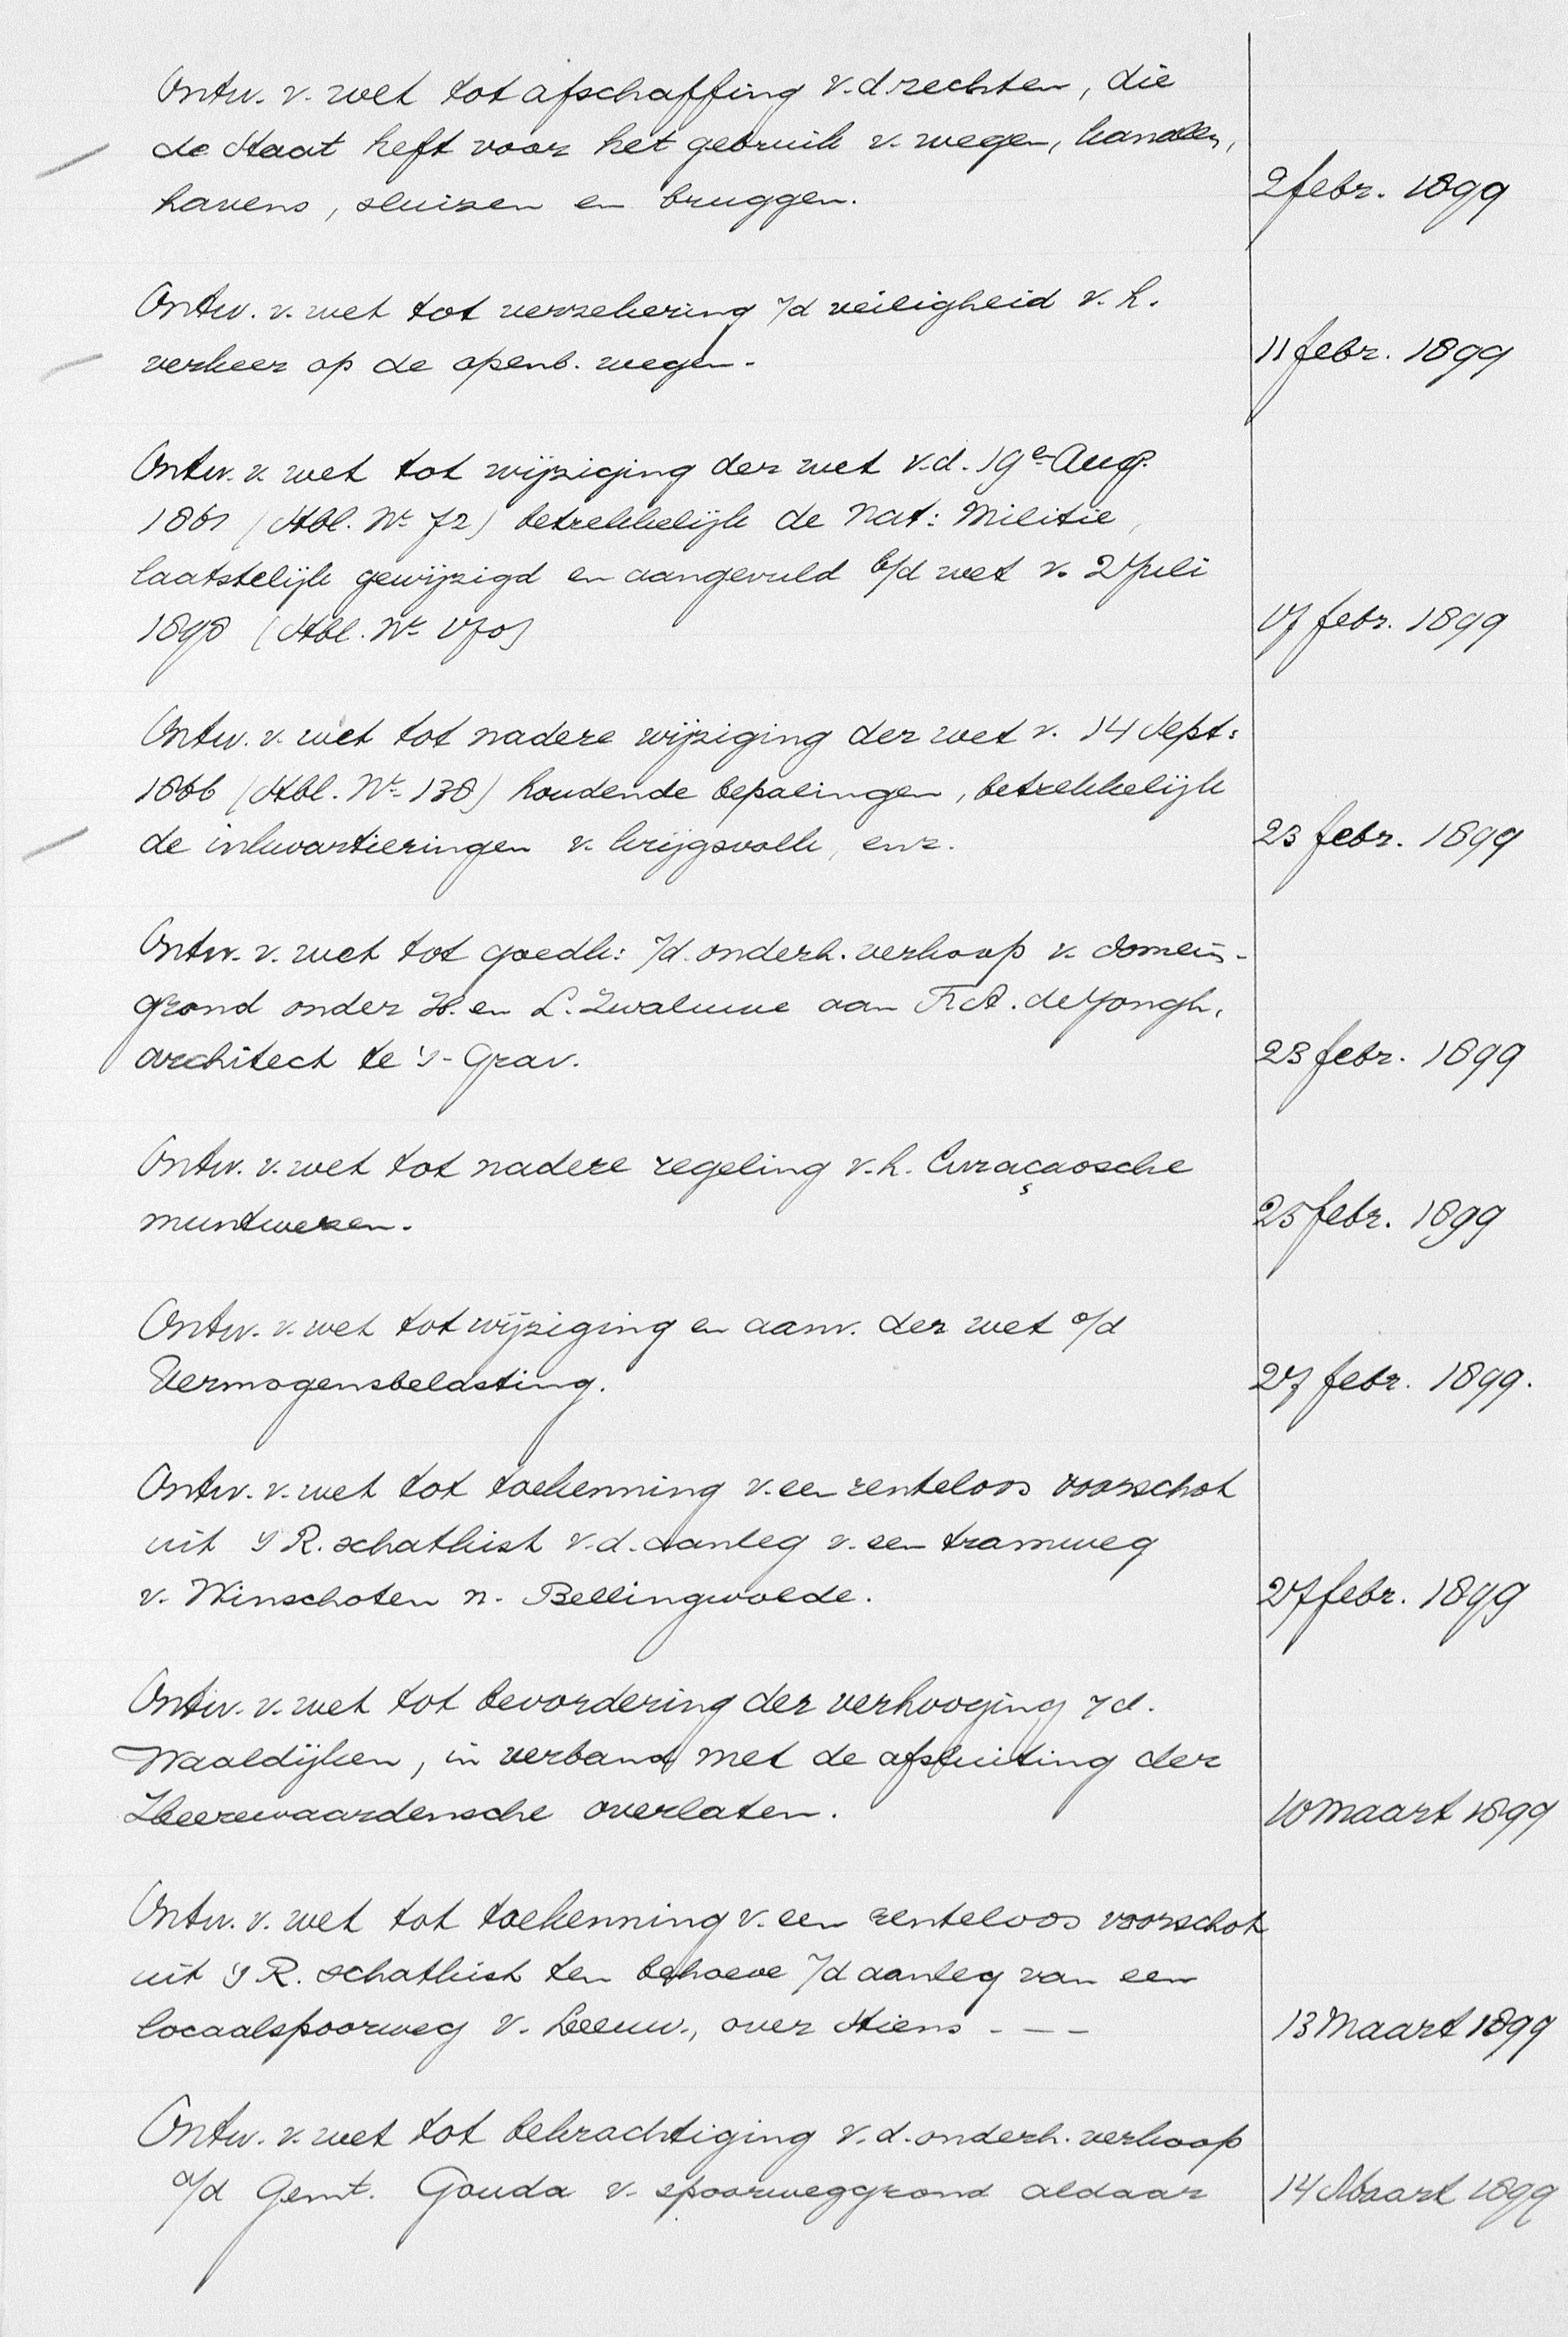 Ontw. v. wet tot afschaffing v.d rechten, die
de Staat heft voor het gebruik v. wegen, kanalen,
havens, sluizen en bruggen.
2 febr. 1899
Ontw. v. wet tot verzekering v/d veiligheid v. h.
verkeer op de openb. wegen.
11 febr. 1899
Ontw. v. wet tot wijziging der wet v.d. 19e Aug.
1861 (Stbl. No 72) betrekkelijk de Nat: Militie,
laatstelijk gewijzigd en aangevuld b/d wet v. 2 Juli
1898 (Stbl. No 170)
17 febr. 1899
Ontw. v. wet tot nadere wijziging der wet v. 14 Sept:
1866 (Stbl. No 138) houdende bepalingen, betrekkelijk
de inkwartieringen v. krijgsvolk, enz.
23 febr. 1899
Ontw. v. wet tot goedk: v/d. onderh. verkoop v. domein-
grond onder H. en L. Zwaluwe aan F.A. de Jongh,
architect te 's-Grav.
23 febr. 1899
Ontw. v. wet tot nadere regeling v.h. Curaçaosche
muntwezen.
25 febr. 1899
Ontw. v. wet tot wijziging en aanv. der wet o/d
Vermogensbelasting.
27 febr. 1899.
Ontw. v. wet tot toekenning v. een renteloos voorschot
uit 's R. schatkist v.d. aanleg v. een tramweg
v. Winschoten n. Bellingwolde.
27 febr. 1899
Ontw. v. wet tot bevordering der verhooging v d.
Waaldijken, in verband met de afsluiting der
Heerewaardensche overlaten.
10 Maart 1899
Ontw. v. wet tot toekenning v. een renteloos voorschot
uit 's R. schatkist ten behoeve v/d aanleg van een
locaalspoorweg v. Leeuw., over Stiens - - -
13 Maart 1899
Ontw. v. wet tot bekrachtiging v.d. onderh. verkoop
a/d Gemt. Gouda v. spoorweggrond aldaar
14 Maart 1899